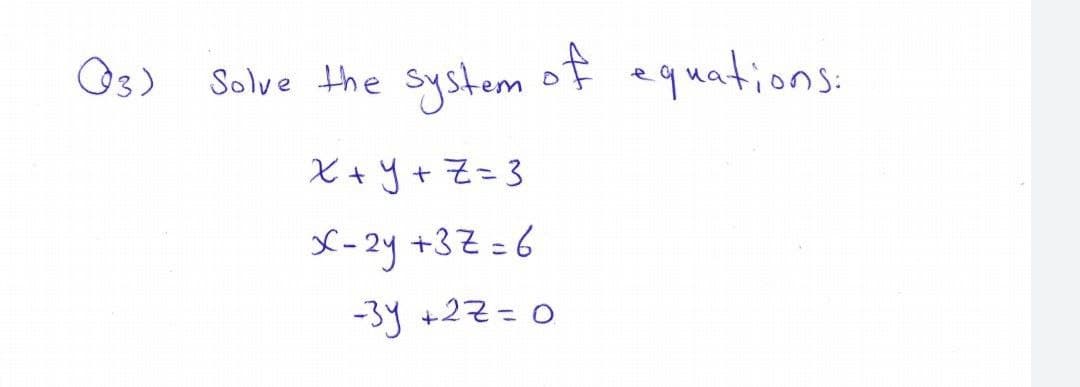 Q3) Solve the system of equations:
x + y + z = 3
x - 2y + 3z = 6
-3y + 2z = 0